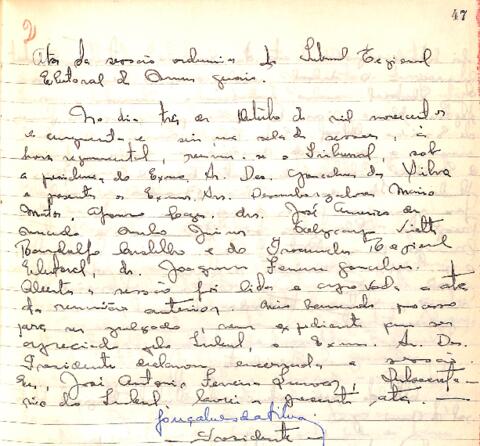 47
2)
Ata da sessão ordinária do Tribunal Regional
Eleitoral de Minas Gerais.
No dia três de outubro de mil novecentos
e cinquenta e seis, na sala de sessões, à
hora regimental, reuniu-se o Tribunal, sob
a presidência do Exmo. Sr. Des. Gonçalves da Silva
e presentes os Exmos. Srs. Desembargadores Merino
Mattos, Afonso drs. José Americo
Junior,
e do Procurador Regional
Eleitoral, dr. Joaquim Ferreira Gonçalves.
Aberta a sessão foi lida e aprovada a ata
da reunião anterior. Não havendo processo
para ser julgado, nem expediente para ser
apreciado pelo Tribunal, o Exmo. Sr. Des.
Presidente declarou encerrada a sessão.
Eu, José Antonio Ferreira
do Tribunal lavrei a presente ata. —
Gonçalves da Silva
— Presidente —